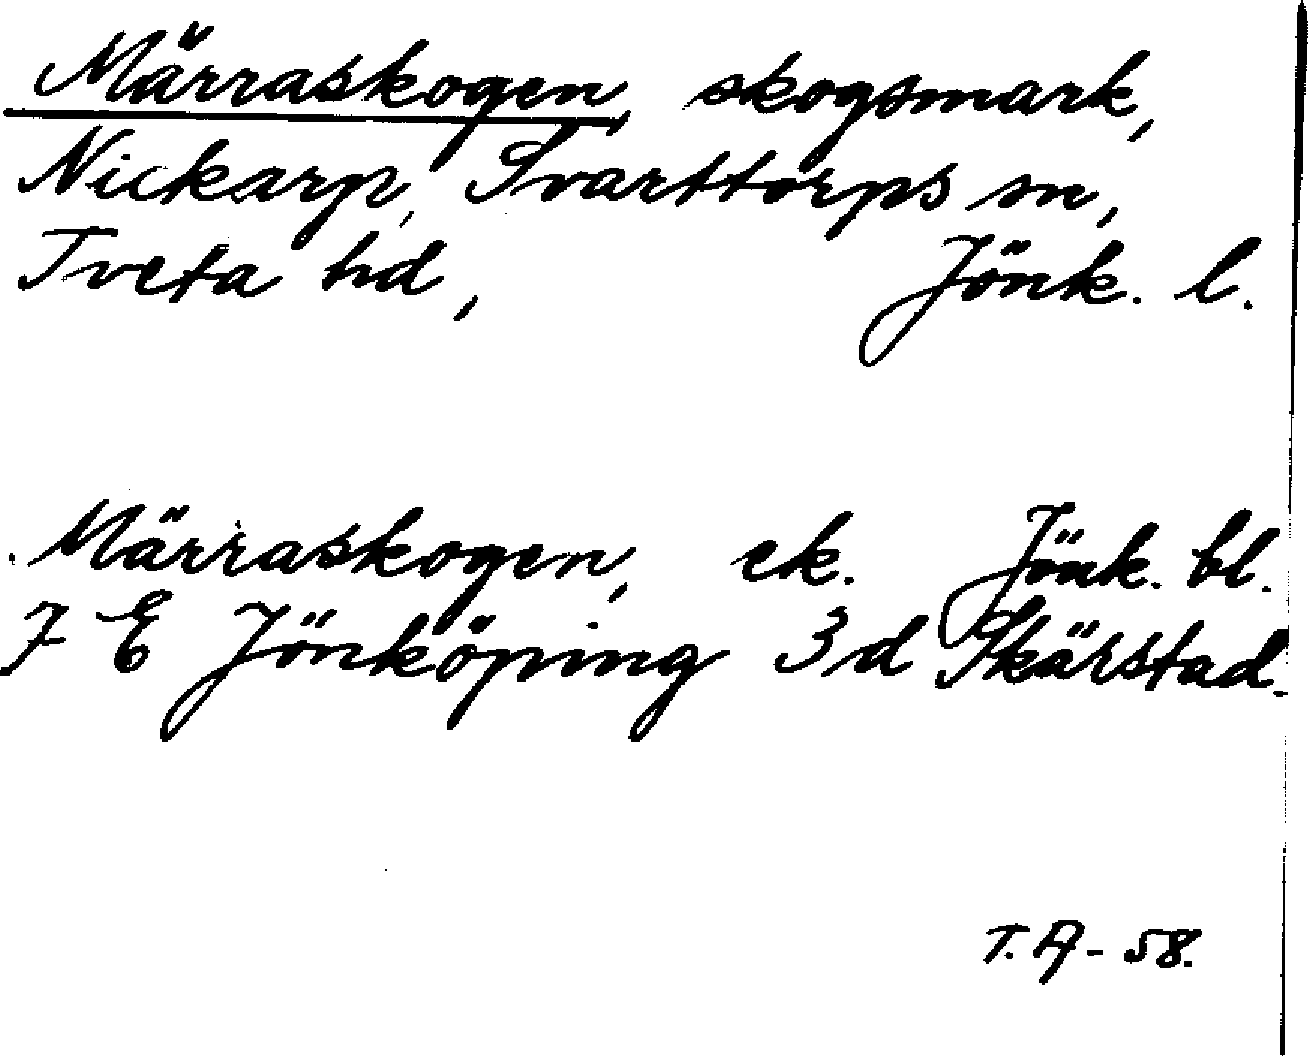 Märraskogen, skogsmark,
Nickarp, Svarttorps sn,
Tveta hd, Jönk. l.
Märraskogen, ek. Jönk. bl.
7 E Jönköping 3 d Skärstad.
T. A - 58.